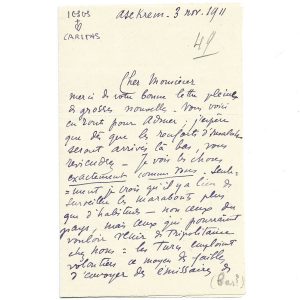 IESUS
CARITAS
asekrem. 3 nov. 1911
Cher Monsieur
merci de votre bonne lettre pleine
de grosses nouvelles. Vous voici
en route pour Adrar. j'espère
que dès que les renforts
seront arrivés là bas, vous
reviendrez - Je vois les choses
exactement comme vous. Seule-
=ment je crois qu'il y a lieu de
surveiller les marabouts plus
que d'habitude - non ceux du
pays, mais ceux qui pourraient
vouloir venir de Tripolitaine
chez nous : les Turcs emploient
volontiers ce moyen
d'envoyer des émissaires